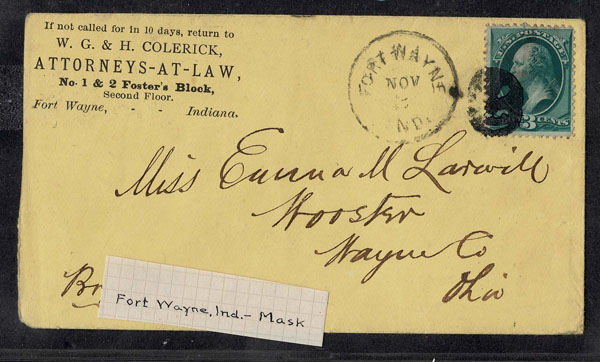 If not called for in 10 days, return to
W. G. & H. COLERICK,
ATTORNEYS-AT-LAW,
No. 1 & 2 Foster's Block,
Second Floor.
Fort Wayne, - - Indiana.
FORT WAYNE
NOV
IND.
U.S. POSTAGE
3 CENTS
Miss Emma M Larwill
Wooster
Wayne Co
Ohio
Fort Wayne, Ind. - Mask